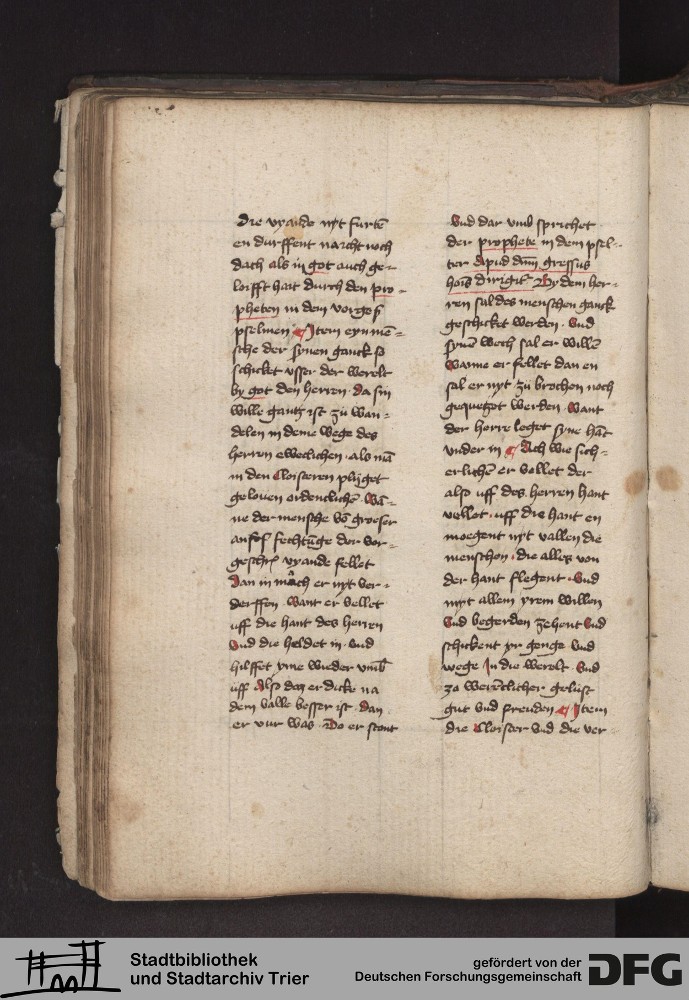 die vyande nyt furtē
en durffent naicht noch
dach als in got auch ge-
loifft hait durch den pro-
pheten in dem
pselmen Jtem eyn mē-
sche der synen ganck
schicket usser der werelt
by got den herren da sin
wille gantz ist zü wan-
delen in deme wege des
herren eweclichen als mā
in den Cloisteren plyget
geloven ordentlichē Wā-
ne der mensche vō groeser
der vor-
vyande fellet
Dan in mach er nyt ver-
derffen Want er vellet
uff die hant des herren
Vnd die heldet in vnd
hilffet yme wieder vmb
uff Also daz er dicke na
dem valle besser ist dan
er vur was Do er stont
Vnd dar vmb sprichet
der prophete in dem psel-
ter Apud dnm gressus
hois dirigit By dem her-
ren sal des menschen ganck
geschicket werden Vnd
synē wech sal er willē
Wanne er fellet dan en
sal er nyt zü brochen noch
gequezot werden Want
der herre leget syne hāt
vnder in Ach wie sich-
erlichē er vellet der
also uff des herren hant
vellet uff die hant en
moegent nyt vallen die
menschen die alles von
der hant flegent Vnd
myt allem yrem willen
Vnd begerden zehent Vnd
schickent yr genge vnd
wege Jn die werelt Vnd
za werētlicher gelüst
gut vnd freuden Jtem
die Cloister vnd die ver-
Stadtbibliothek
und Stadtarchiv Trier
gefördert von der
Deutschen Forschungsgemeinschaft
DFG